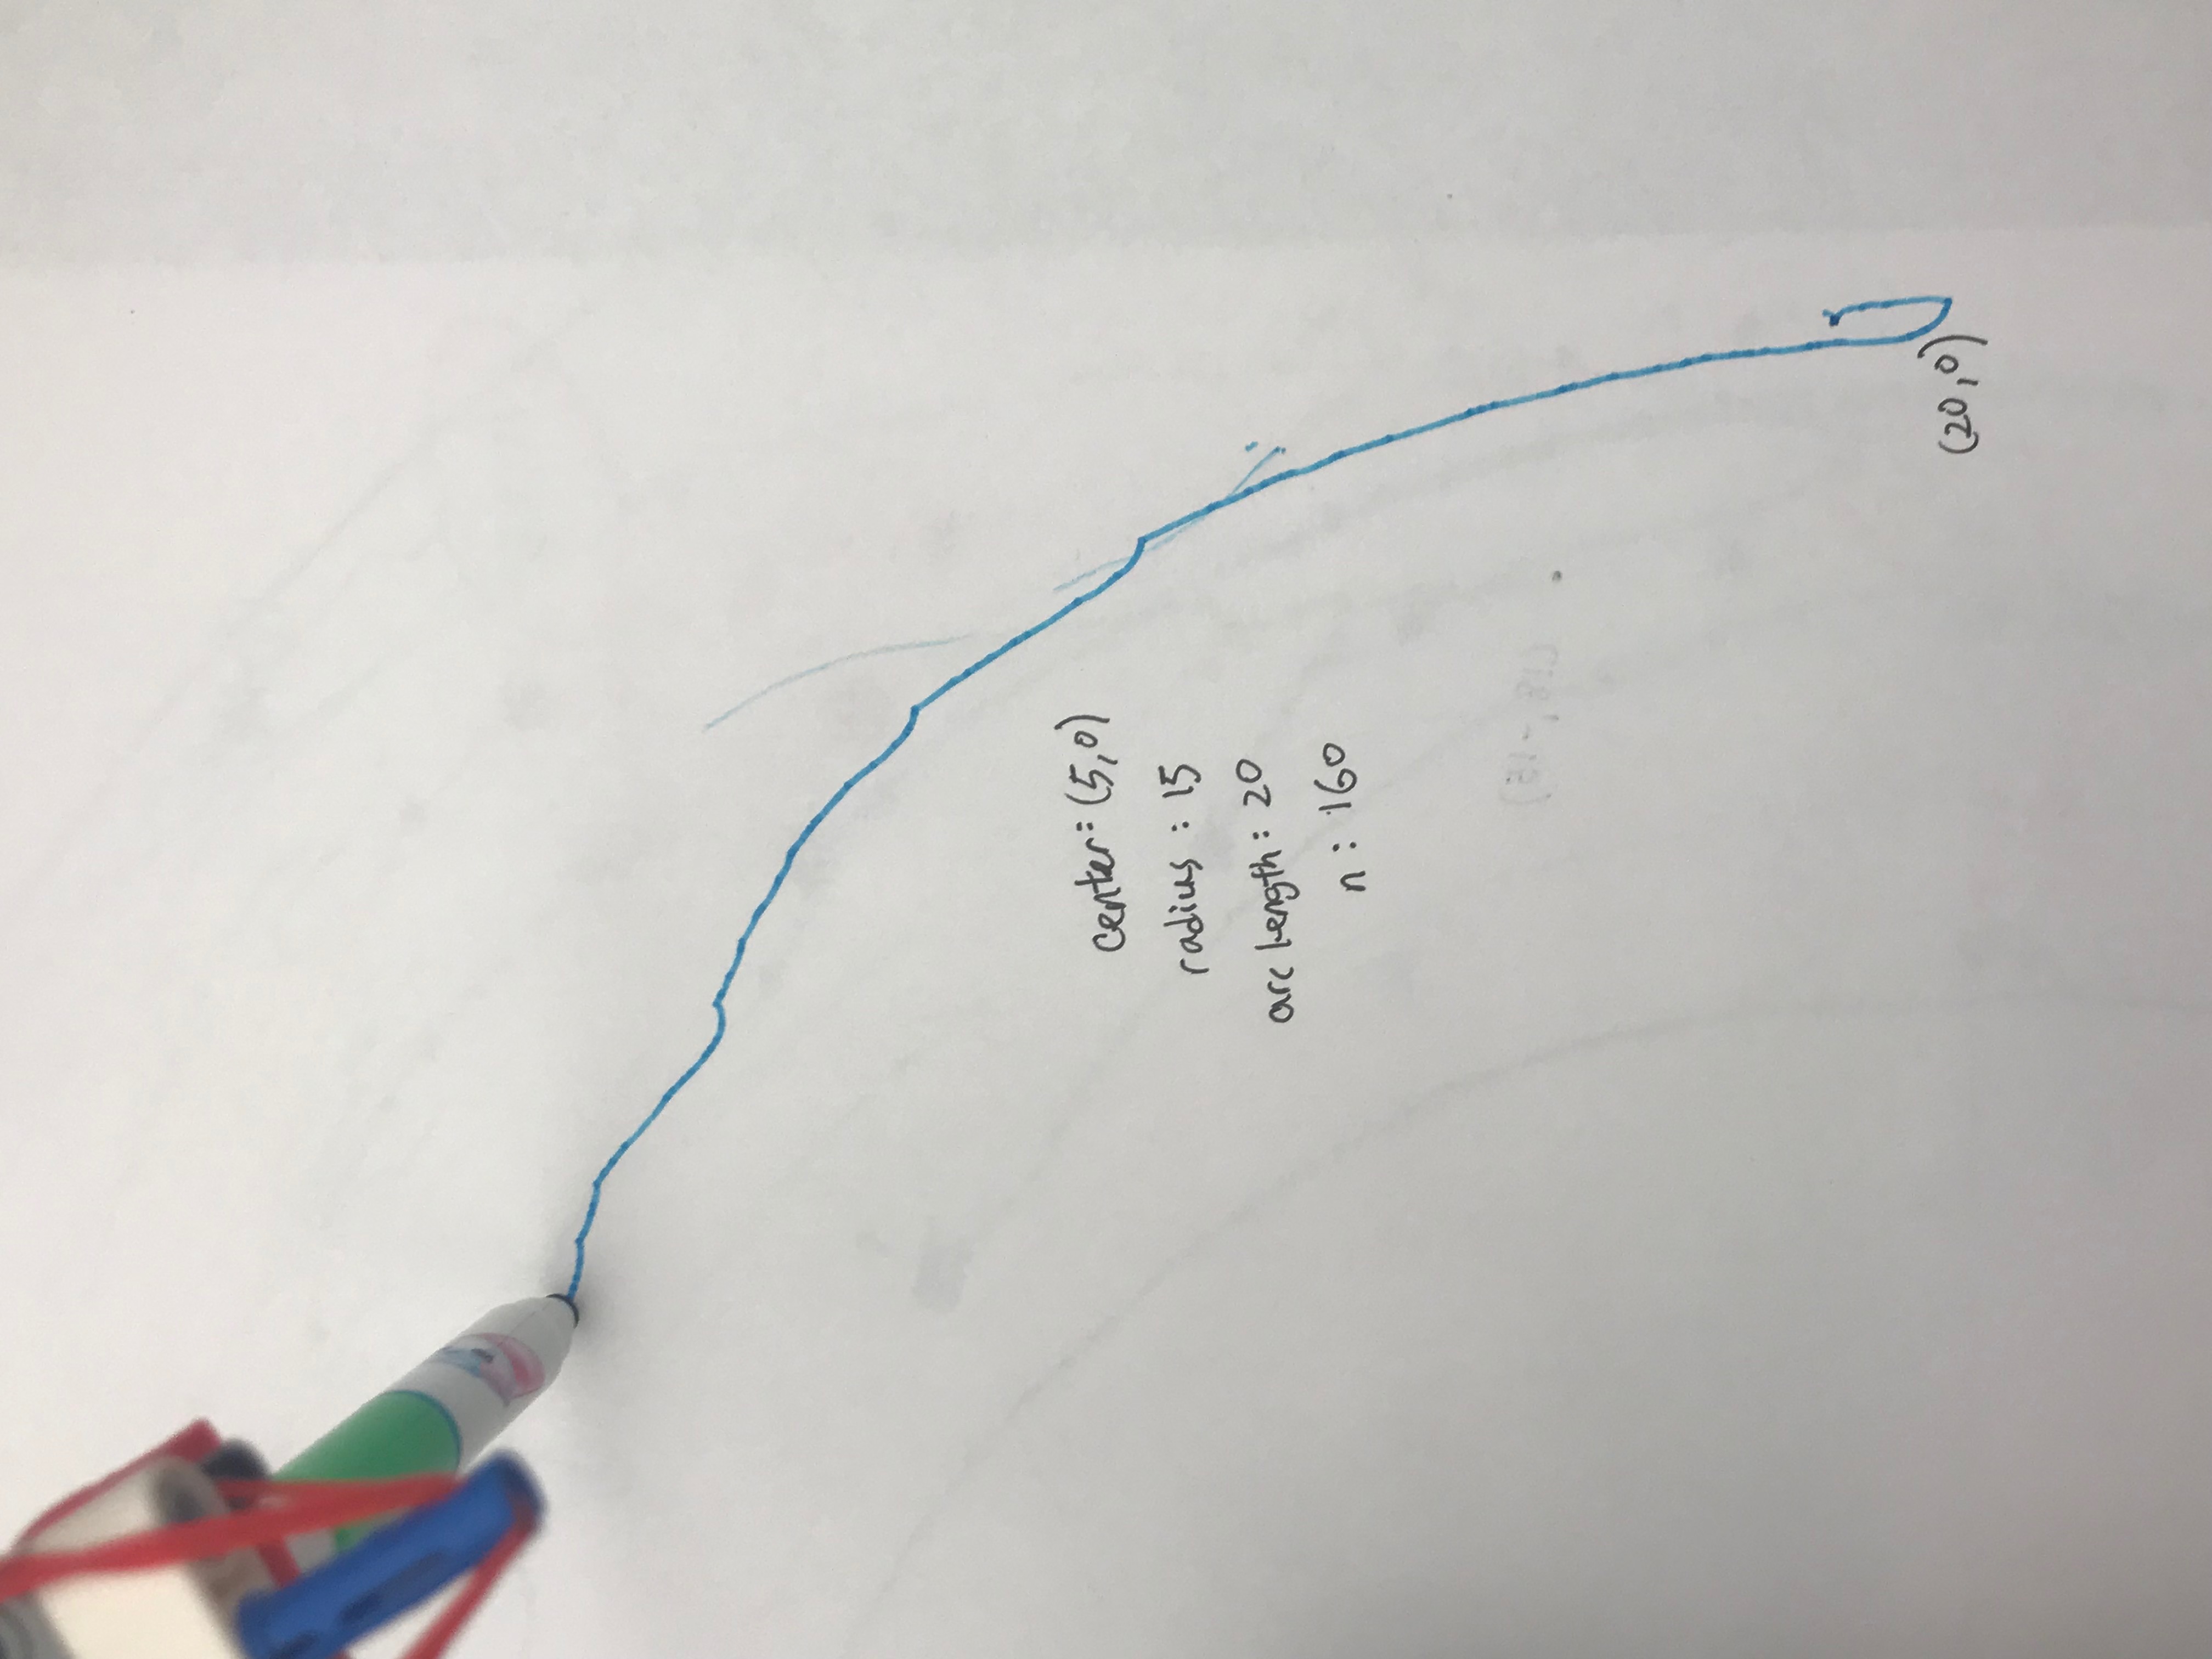 center: (5,0)
radius : 15
arc length: 20
n : 160
(18,-15)
(20,0)